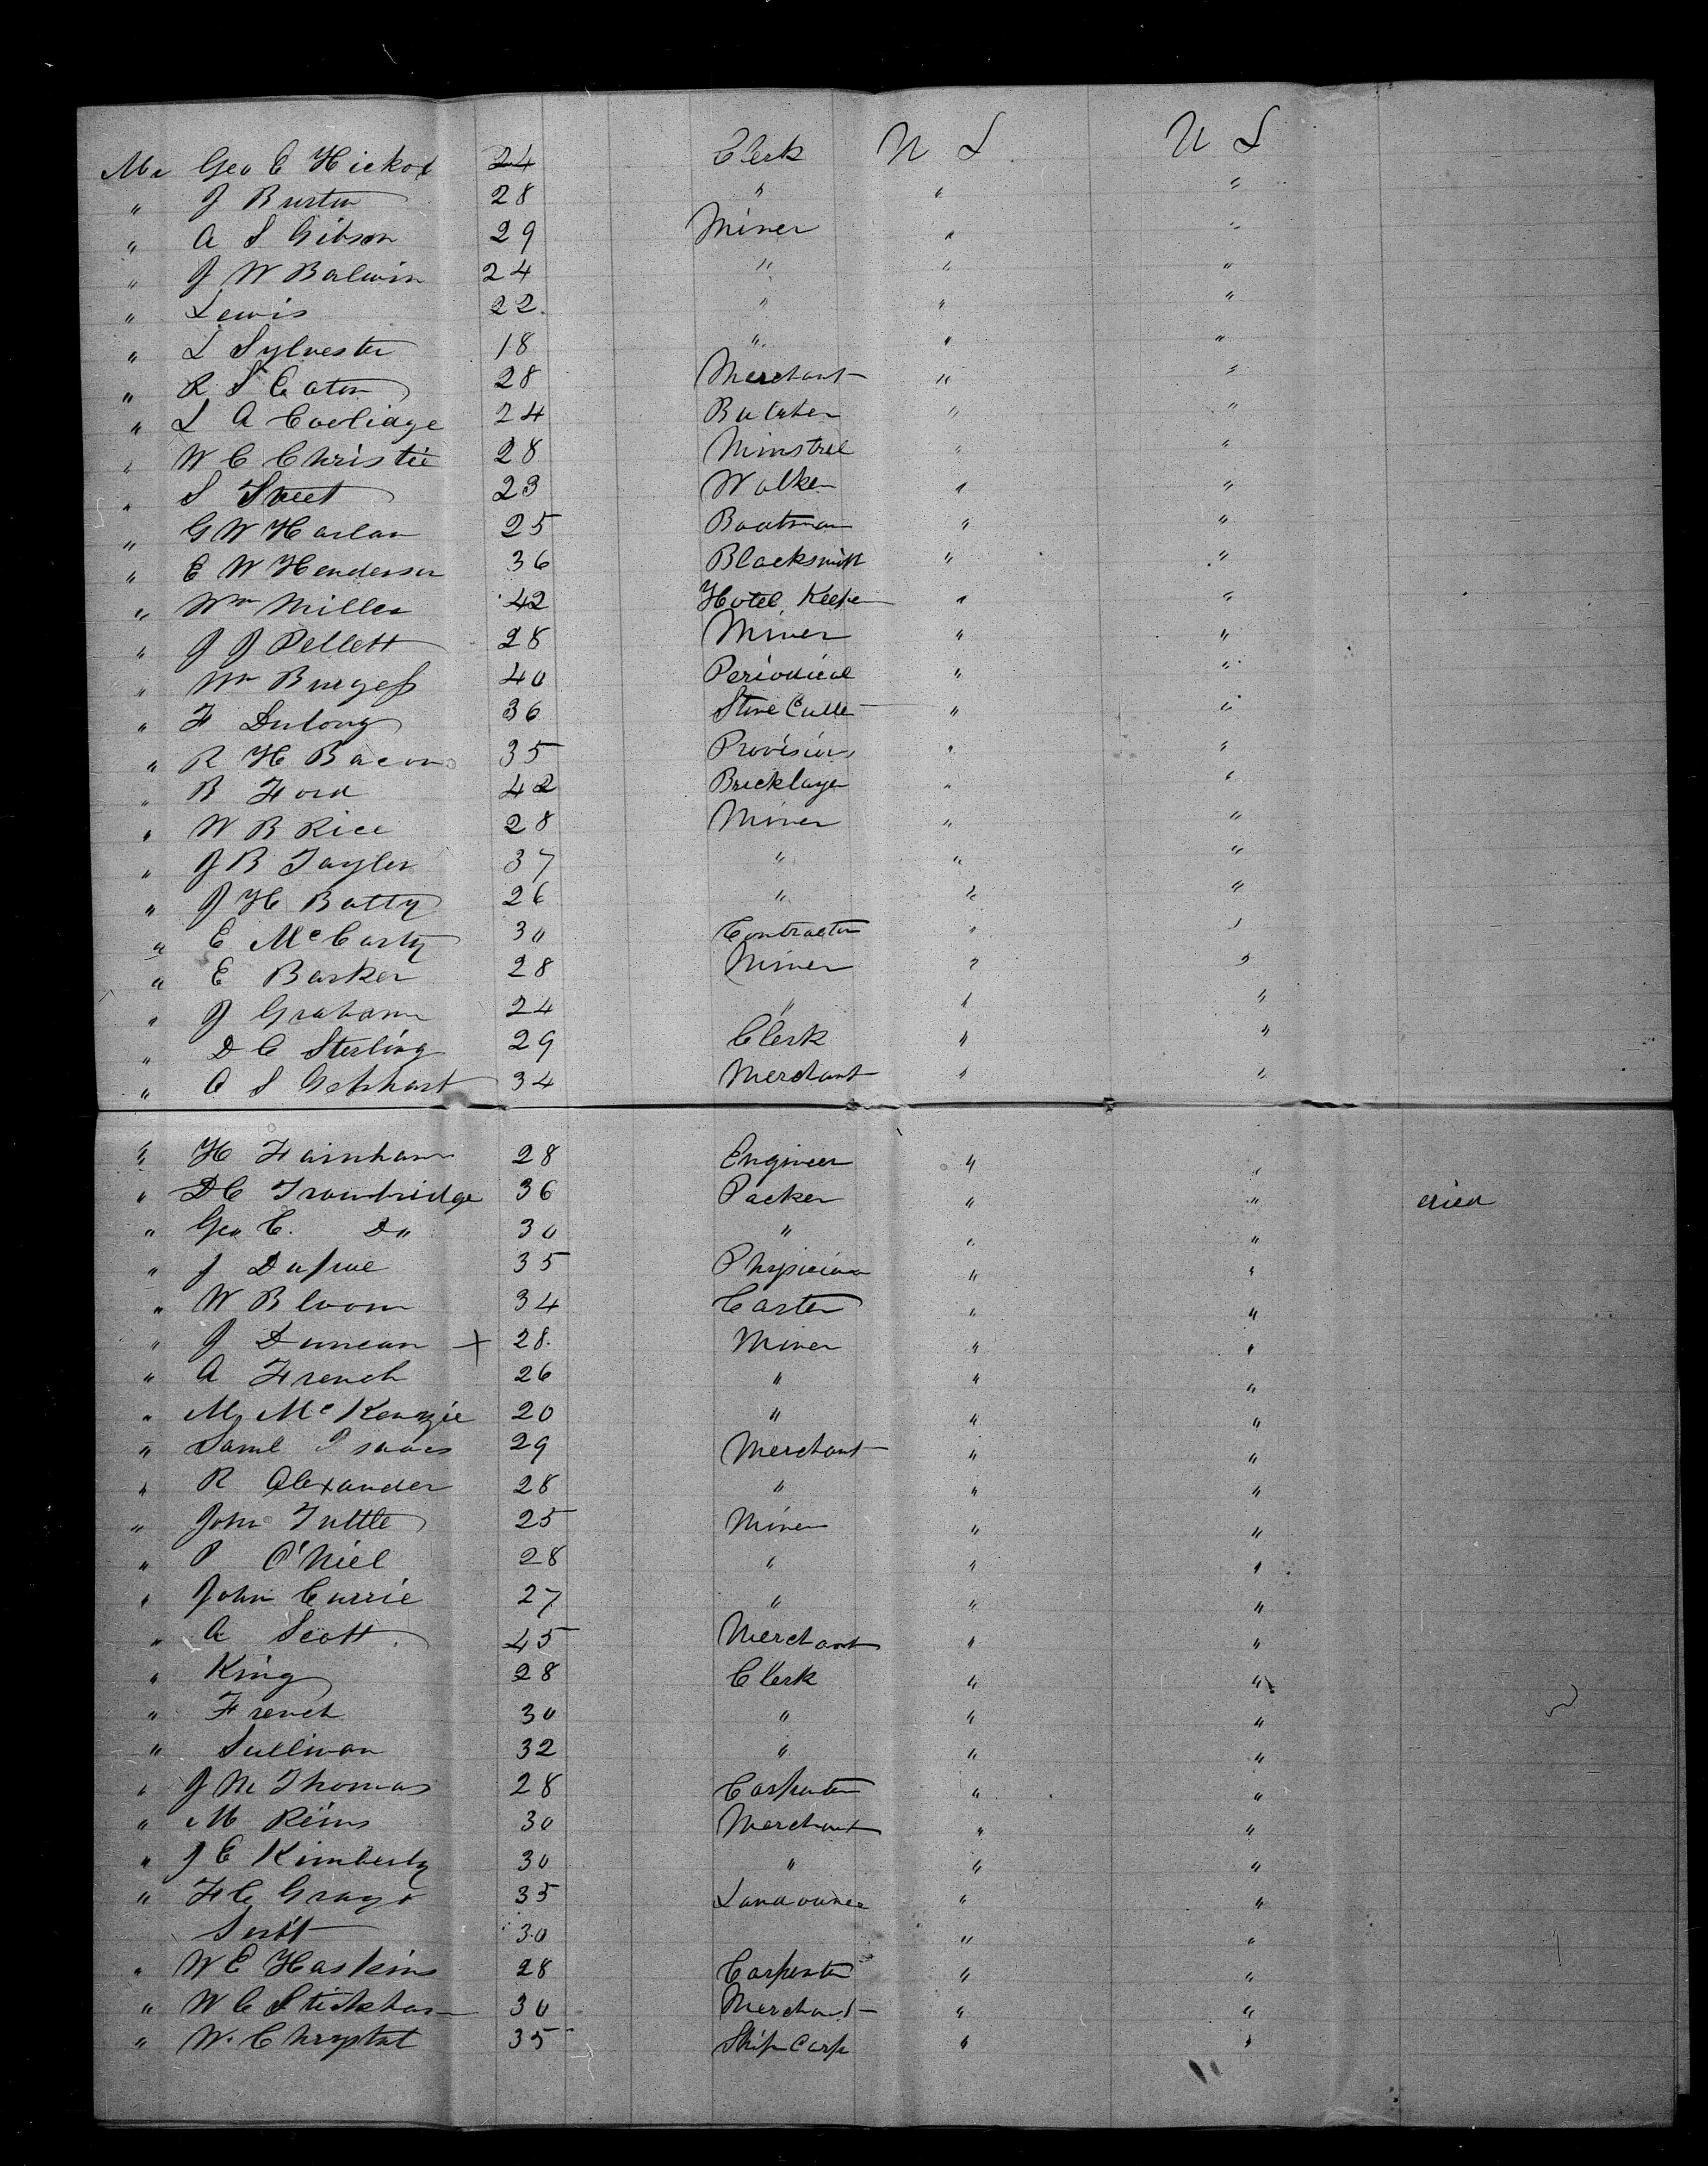 Mr Geo C Hickox 24 Clerk U S U S
" J Burton 28 " " "
" A S Gibson 29 Miner " "
" J W Balwin 24 " " "
" Lewis 22 " " "
" L Sylvester 18 " " "
" R S Eaton 28 Merchant " "
" L A Coolidge 24 Butcher " "
" W C Christie 28 Minstrel " "
" S Sweet 23 Walker " "
" G W Harlan 25 Boatman " "
" E W Henderson 36 Blacksmith " "
" Wm Miller 42 Hotel Keeper " "
" J J Pellett 28 Miner " "
" Wm Burgess 40 Periodical " "
" F Dulong 36 Stone Cutter " "
" R H Bacon 35 Provisions " "
" B Ford 42 Bricklayer " "
" W B Rice 28 Miner " "
" J B Tayler 37 " " "
" J H Batty 26 " " "
" E McCarty 30 Contractor " "
" E Barker 28 Miner " "
" J Graham 24 " " "
" D C Sterling 29 Clerk " "
" O S Gebhart 34 Merchant " "
" H Farnham 28 Engineer " "
" D C Trowbridge 36 Packer " " died
" Geo C. Do 30 " " "
" J Dupue 35 Physician " "
" W Bloom 34 Carter " "
" J Duncan + 28. Miner " "
" A French 26 " " "
" M McKenzie 20 " " "
" Saml Isaacs 29 Merchant " "
" R Alexander 28 " " "
" John Tuttle 25 Miner " "
" P O'Niel 28 " " "
" John Currie 27 " " "
" A Scott. 45 Merchant " "
" King 28 Clerk " "
" French 30 " " "
" Sullivan 32 " " "
" J M Thomas 28 Carpenter " "
" M Reims 30 Merchant " "
" J E Kimberly 30 " " "
" F C Gray 35 Landowner " "
Servt 30 " "
" W E Haskins 28 Carpenter " "
" W C Stickham 30 Merchant " "
" W. Chrystal 35 Ship Carp " "